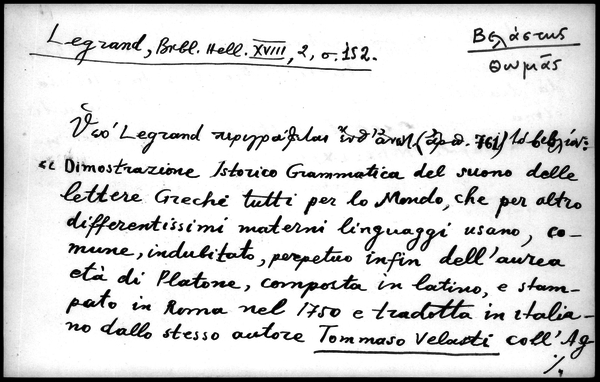 Legrand, Bibl. Hell. XVIII, 2, σ. 152.
Βελάστης
Θωμᾶς
Ὑπό Legrand περιγράφεται ἐνθ' ἀνωτ. (ἀριθ. 761) τό βιβλίον:
« Dimostrazione Istorico Grammatica del suono delle
lettere Greche tutti per lo Mondo, che per altro
differentissimi materni linguaggi usano, co-
mune, indubitato, perpetuo infin dell'aurea
età di Platone, composta in latino, e stam-
pato in Roma nel 1750 e tradotta in italia-
no dallo stesso autore Tommaso Velasti coll' Ag
./.